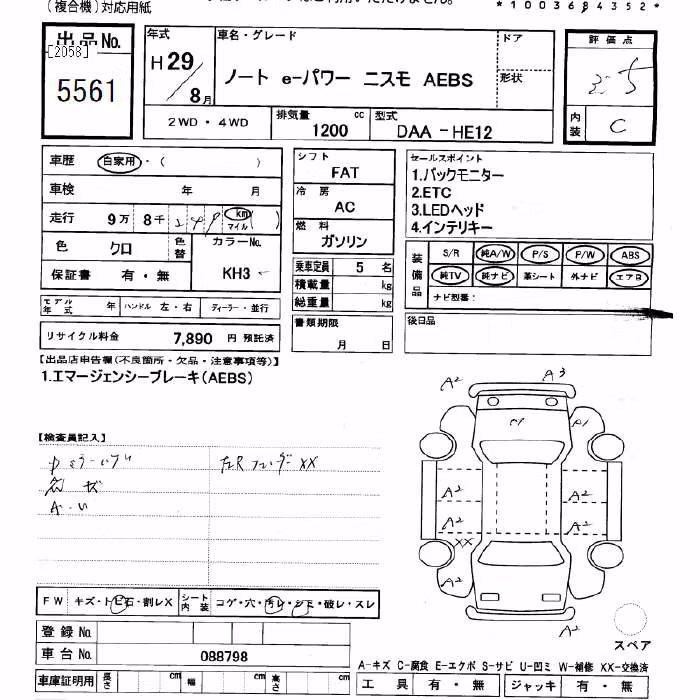 (複合機)対応用紙
*1003684352*
出品No.
[2058]
5561
年式
H29/8月
車名・グレード
ノート e-パワー ニスモ AEBS
ドア
形状
評価点
3.5
内装
C
2WD・4WD
排気量 cc
1200
型式
DAA-HE12
車歴 自家用・( )
車検 年 月
走行 9万 8千 km マイル ( )
色 クロ 色替 カラーNo. KH3
保証書 有・無
シフト
FAT
冷房
AC
燃料
ガソリン
乗車定員 5 名
積載量 kg
総重量 kg
セールスポイント
1.バックモニター
2.ETC
3.LEDヘッド
4.インテリキー
装備品
S/R 純A/W P/S P/W ABS
純TV 純ナビ 革シート 外ナビ エアB
ナビ型番:
モデル年式 年 ハンドル 左・右 ディーラー・並行
リサイクル料金 7,890 円 預託済
書類期限
月 日
後日品
【出品店申告欄(不良箇所・欠品・注意事項等)】
1.エマージェンシーブレーキ(AEBS)
【検査員記入】
左Rフェンダー XX
A3
A2
A1
A2
A2
A2
A2
XX
A2
A2
A2
FW キズ・トビ石・割レX シート内装 コゲ・穴・汚レ・シミ・破レ・スレ
登録No.
車台No. 088798
スペア
A-キズ C-腐食 E-エクボ S-サビ U-凹ミ W-補修 XX-交換済
車庫証明用 長さ cm 幅 cm 高さ cm
工具 有・無 ジャッキ 有・無